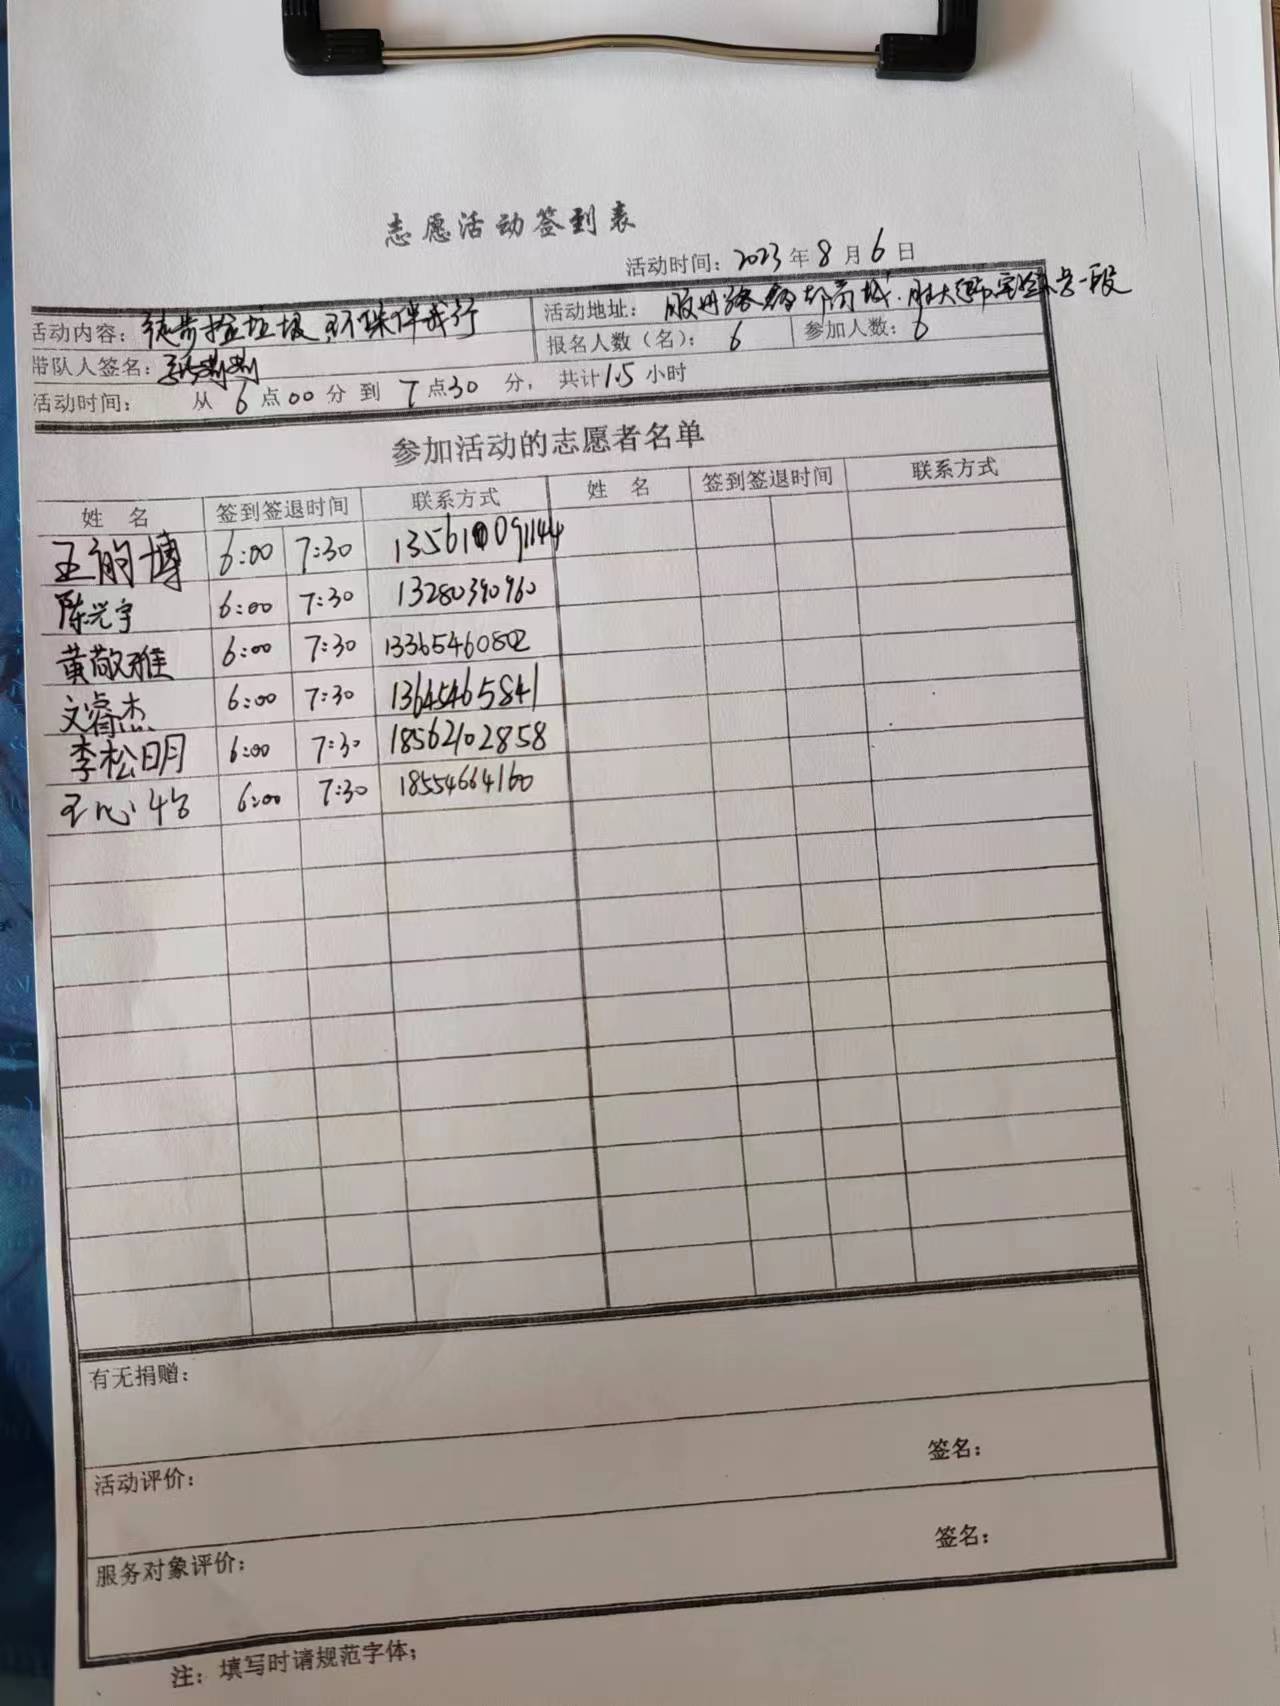 志愿活动签到表
活动时间：2023年8月6日
活动内容：徒步捡垃圾 环保伴我行
活动地址：
带队人签名：
报名人数（名）：6 参加人数：6
活动时间： 从 6点00分到 7点30分，共计1.5小时
参加活动的志愿者名单
姓 名 签到签退时间 联系方式 姓 名 签到签退时间 联系方式
王韵博 6:00 7:30 135610091144
陈兴宇 6:00 7:30 13280390960
黄敬雅 6:00 7:30 13365460802
文睿杰 6:00 7:30 13645465841
李松明 6:00 7:30 18562102858
王心 6:00 7:30 18554664160
有无捐赠：
活动评价：
签名：
服务对象评价：
签名：
注：填写时请规范字体；